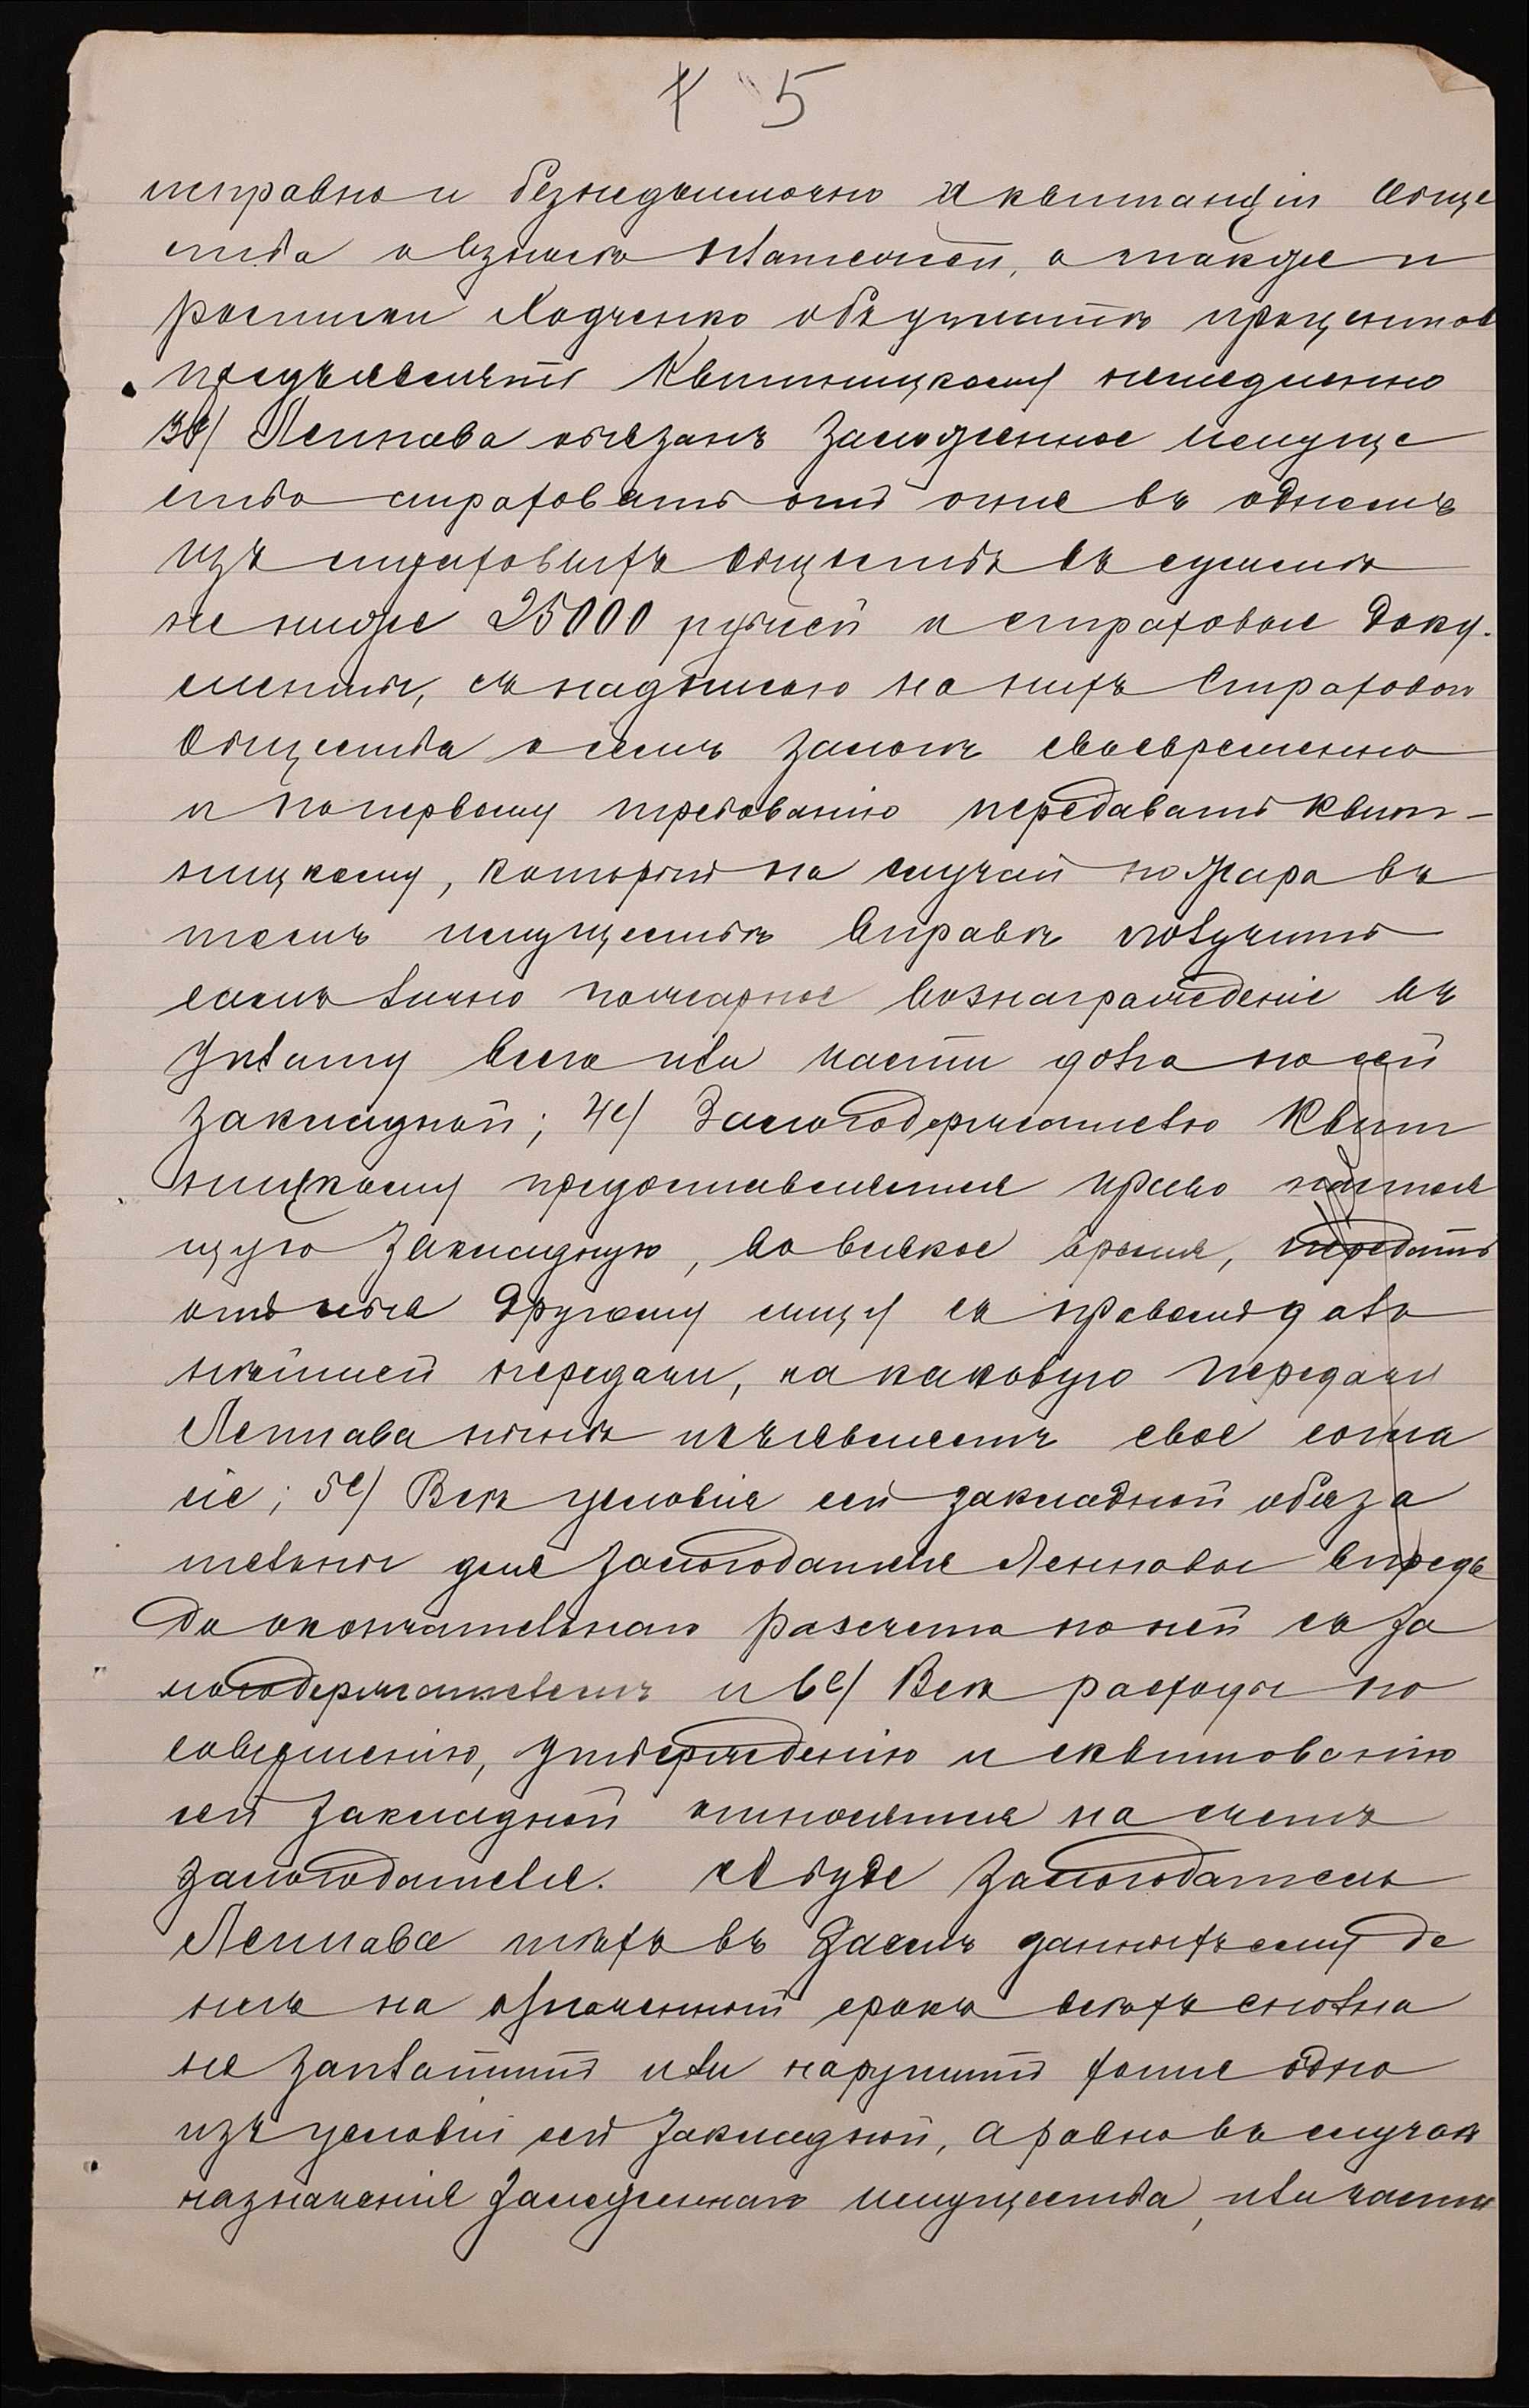 5
исправно и безнедоимочно и квитанціи Обще
ства о взносѣ платежей, а также и
росписки Ходченко объ уплатѣ процентовъ
предъявлять Квитницкому немедленно
3е/ Леплава обязанъ заложенное имуще
ство страховать отъ огня въ одномъ
изъ страховыхъ Обществъ въ суммѣ
не ниже 25000 рублей и страховые доку-
менты, съ надписью на нихъ Страхового
Общества о семъ залогѣ своевременно
и по первому требованію передавать Квит-
ницкому, который на случай пожара въ
томъ имуществѣ вправѣ получить
самъ лично пожарное вознагражденіе въ
уплату всего или части долга по сей
закладной; 4е/ Залогодержателю Квит
ницкому предоставляется право настоя
щую закладную, во всякое время, передать
отъ себя другому лицу съ правомъ даль
нѣйшей передачи, на каковую передачу
Леплава нынѣ изъявляетъ свое согла
сіе; 5е/ Всѣ условія сей закладной обяза
тельны для залогодателя Леплавы впредь
до окончательнаго разсчета по ней съ за
логодержателемъ и 6е/ Всѣ расходы по
совершенію, утвержденію и сквитованію
сей закладной относятся на счетъ
залогодателя. А буде залогодатель
Леплава тѣхъ въ заемъ данныхъ ему де
негъ на означенный срокъ всѣхъ сполна
не заплатитъ или нарушитъ хотя одно
изъ условій сей закладной, а равно въ случаѣ
назначенія заложеннаго имущества, или части